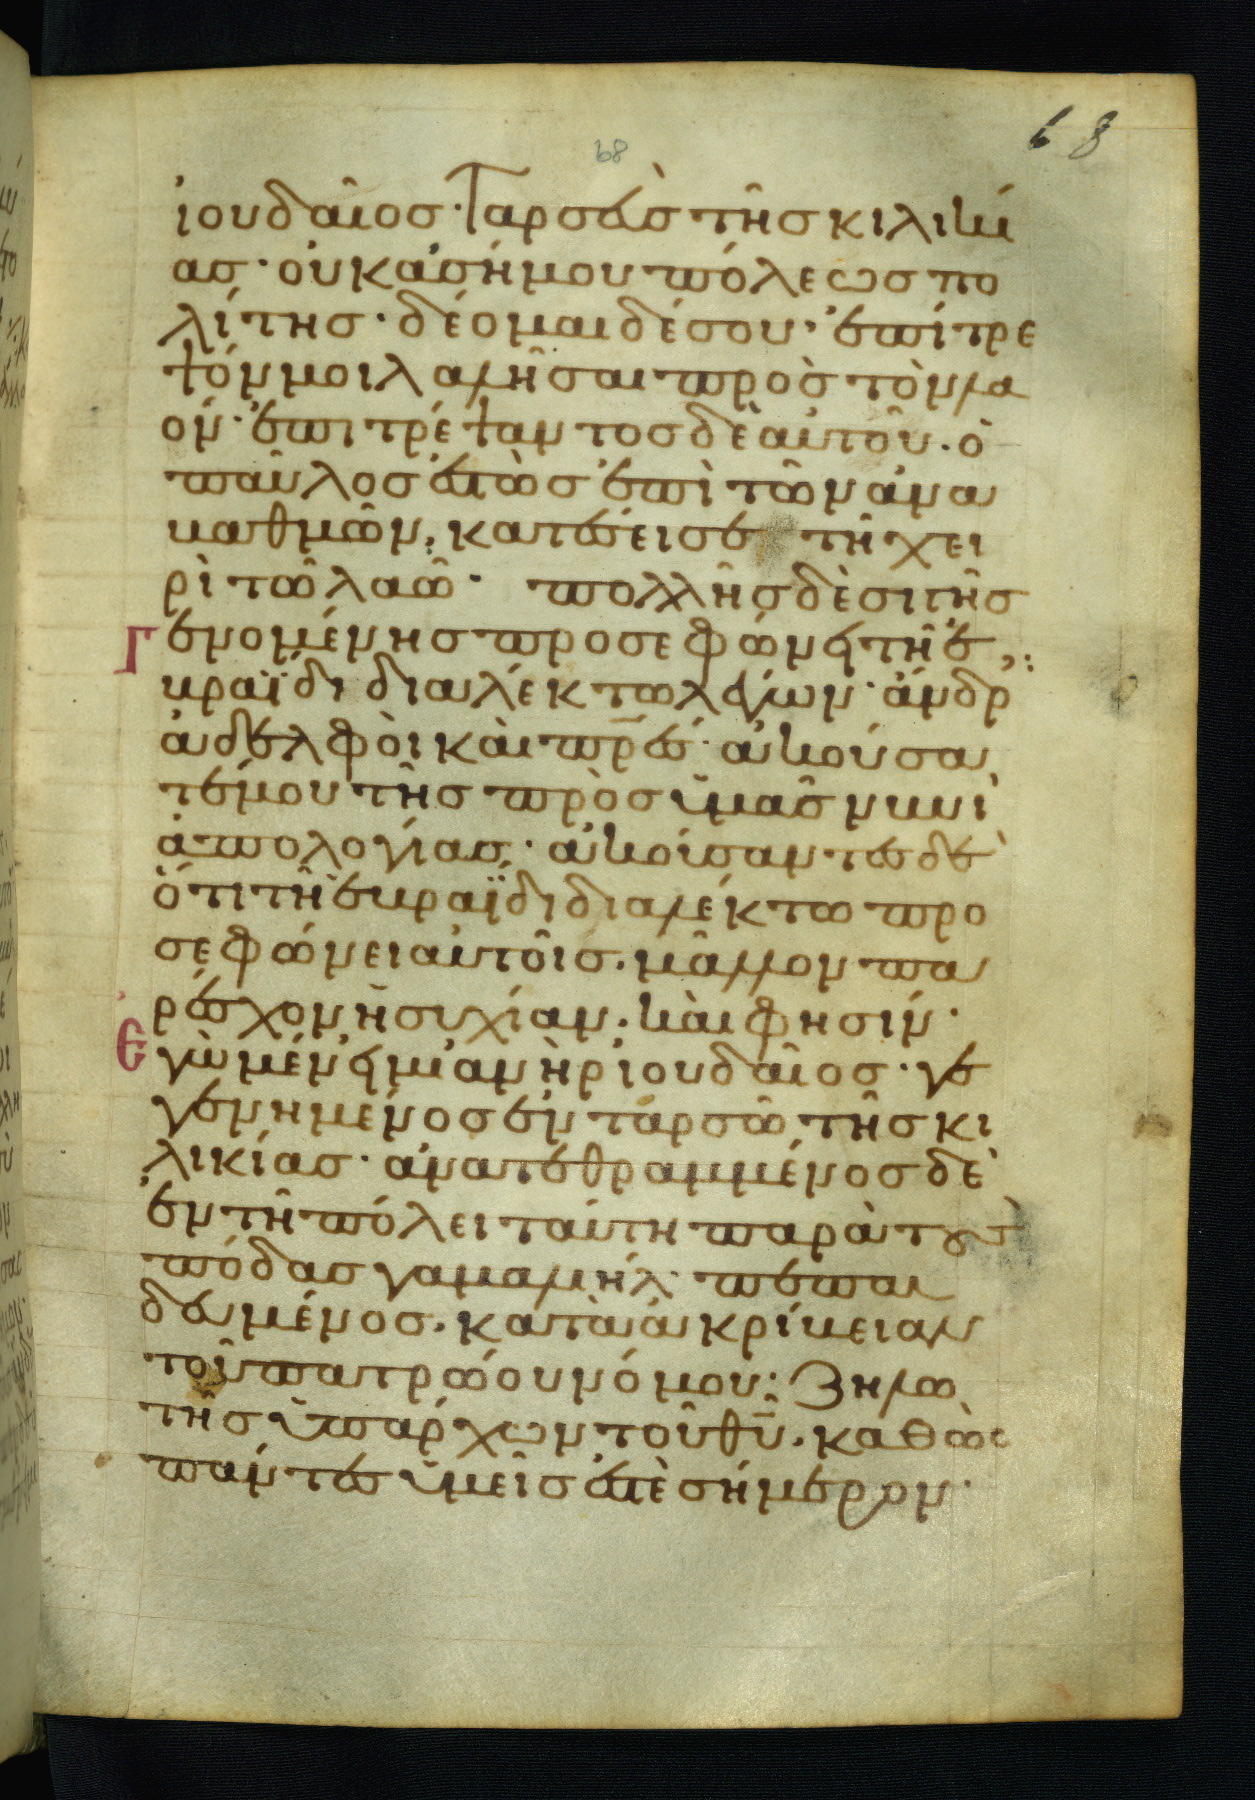 68
68
ἰουδαῖος· Ταρσεὺς τῆς κιλικί
ας· οὐκ ἀσήμου πόλεως πο
λίτης· δέομαι δέ σου· ἐπίτρε
ψόν μοι λαλῆσαι πρὸς τὸν λα
όν· ἐπιτρέψαντος δὲ αὐτοῦ· ὁ
παῦλος ἑστὼς ἐπὶ τῶν ἀνα
βαθμῶν, κατέσεισε τῆ χει
ρὶ τῶ λαῶ· πολλῆς δὲ σιγῆς
Γ ενομένης προσεφώνει τῆ ἑ
βραΐδι διαλέκτω λέγων· ἄνδρ
ἀδελφοὶ καὶ πρες· ἀκούσα
τέ μου τῆς πρὸς ὑμᾶς νυνὶ
ἀπολογίας· ἀκούσαντες δὲ
ὅτι τῆ ἑβραΐδι διαλέκτω προ
σεφώνει αὐτοῖς, μᾶλλον πα
ρέσχον ἡσυχίαν· καὶ φησίν·
Ε γὼ μέν εἰμι ἀνὴρ ἰουδαῖος· γε
γεννημένος ἐν ταρσῶ τῆς κι
λικίας· ἀνατεθραμμένος δὲ
ἐν τῆ πόλει ταύτη παρὰ τοὺς
πόδας γαμαλιήλ· πεπαι
δευμένος· κατὰ ἀκρίβειαν
τοῦ πατρώου νόμου· Ζηλω
τὴς ὑπάρχων τοῦ θυ, καθὼς
πάντες ὑμεῖς ἐστὲ σήμερον·